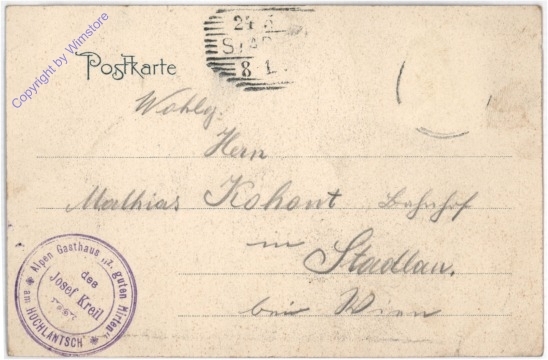 Copyright by Wimstore
Postkarte
24 8
STAD
8 1
Wohlg.
Herrn
Mathias Kohout Bahnhof
in
Stadlau.
bei Wien
Alpen Gasthaus „z. guten Hirten“
des
Josef Kreil
am HOCHLANTSCH